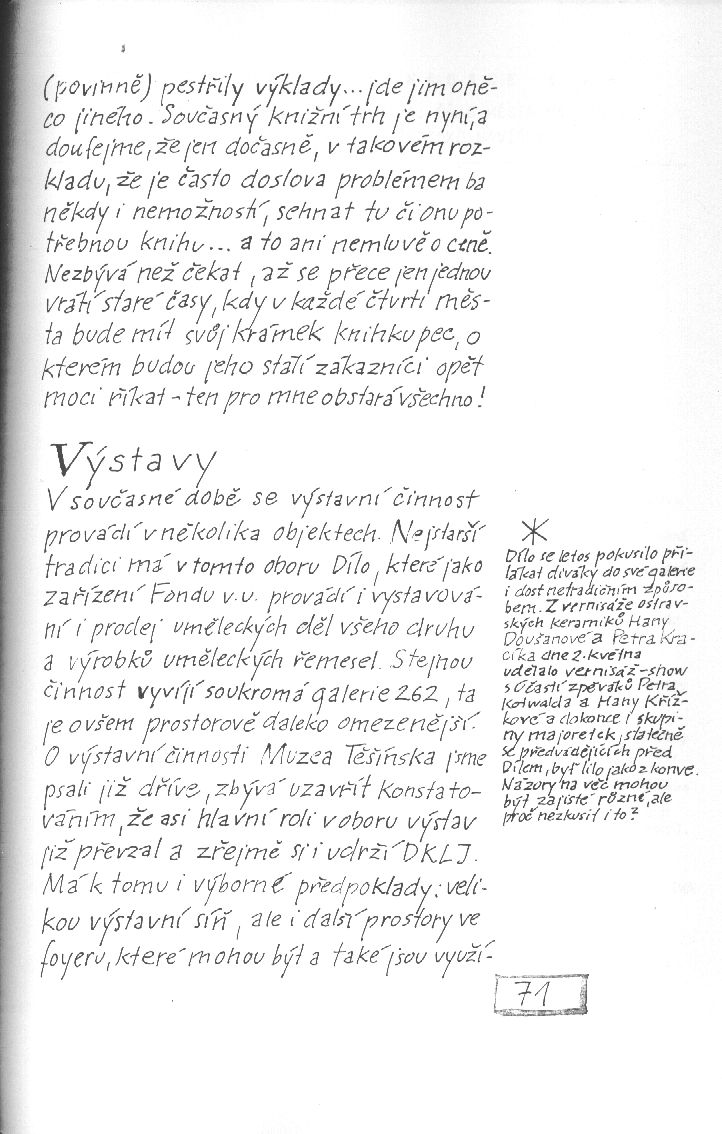 (povinně) pestřily výklady... jde jim o ně-
co jiného. Současný knižní trh je nyní, a
doufejme, že jen dočasně, v takovém roz-
kladu, že je často doslova problémem ba
někdy i nemožností, sehnat tu či onu po-
třebnou knihu... a to ani nemluvě o ceně.
Nezbývá než čekat, až se přece jen jednou
vrátí staré časy, kdy v každé čtvrti měs-
ta bude mít svůj krámek knihkupec, o
kterém budou jeho stálí zákazníci opět
moci říkat - ten pro mne obstará všechno!
Výstavy
V současné době se výstavní činnost
provádí v několika objektech. Nejstarší
tradici má v tomto oboru Dílo, které jako
zařízení Fondu v.u. provádí i vystavová-
ní i prodej uměleckých děl všeho druhu
a výrobků uměleckých řemesel. Stejnou
činnost vyvíjí soukromá galerie 262, ta
je ovšem prostorově daleko omezenější.
O výstavní činnosti Muzea Těšínska jsme
psali již dříve, zbývá uzavřít konstato-
váním, že asi hlavní roli v oboru výstav
již převzal a zřejmě si i udrží DKLJ.
Má k tomu i výborné předpoklady: veli-
kou výstavní síň, ale i další prostory ve
foyeru, které mohou být a také jsou využí-
*
Dílo se letos pokusilo při-
lákat diváky do své galerie
i dost netradičním způso-
bem. Z vernisáže ostrav-
ských keramiků Hany
Doušanové a Petra Kra-
cíka dne 2. května
udělalo vernisáž-show
s účastí zpěváků Petra
Kotwalda a Hany Kříž-
kové a dokonce i skupi-
ny majoretek, statečně
se předvádějících před
Dílem, byť lilo jako z konve.
Názory na věc mohou
být zajisté různé, ale
proč nezkusit i to?
71